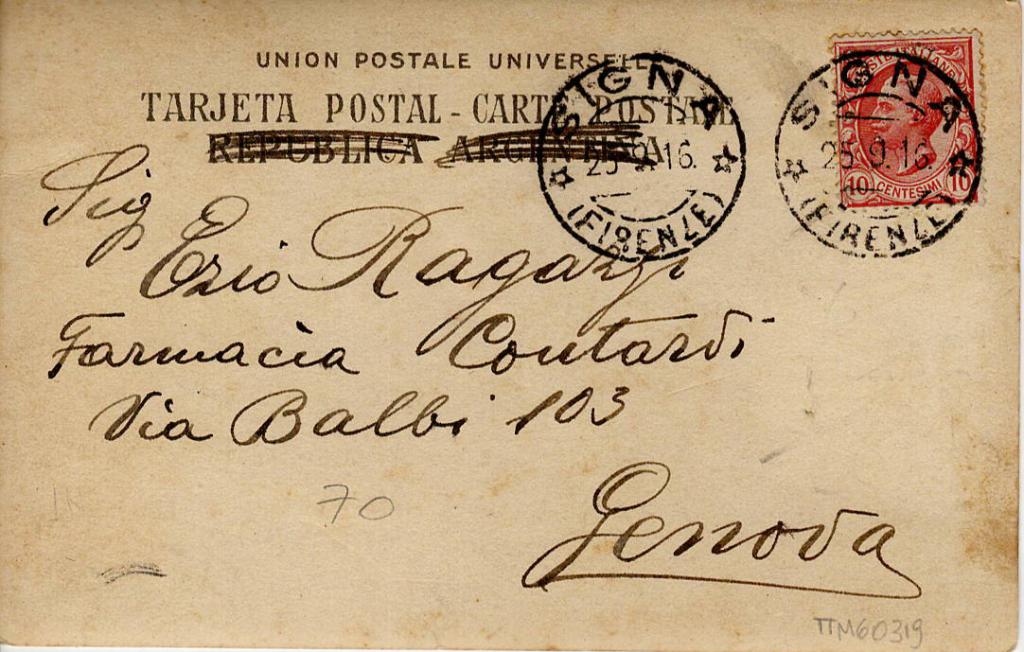 UNION POSTALE UNIVERSELLE
TARJETA POSTAL - CARTE POSTALE
REPUBLICA ARGENTINA
SIGNA
25.9.16.
(FIRENZE)
SIGNA
25.9.16.
(FIRENZE)
10 CENTESIMI 10
Sig
Ezio Ragazzi
Farmacia Contardi
Via Balbi 103
Genova
70
TTM60319